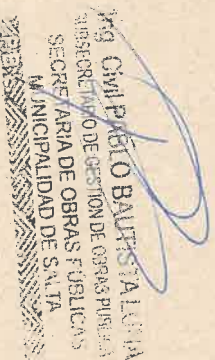 Ing. Civil PABLO BAUTISTA
SUBSECRETARIO DE GESTION DE OBRAS PUBLICAS
SECRETARIA DE OBRAS PÚBLICAS
MUNICIPALIDAD DE SALTA